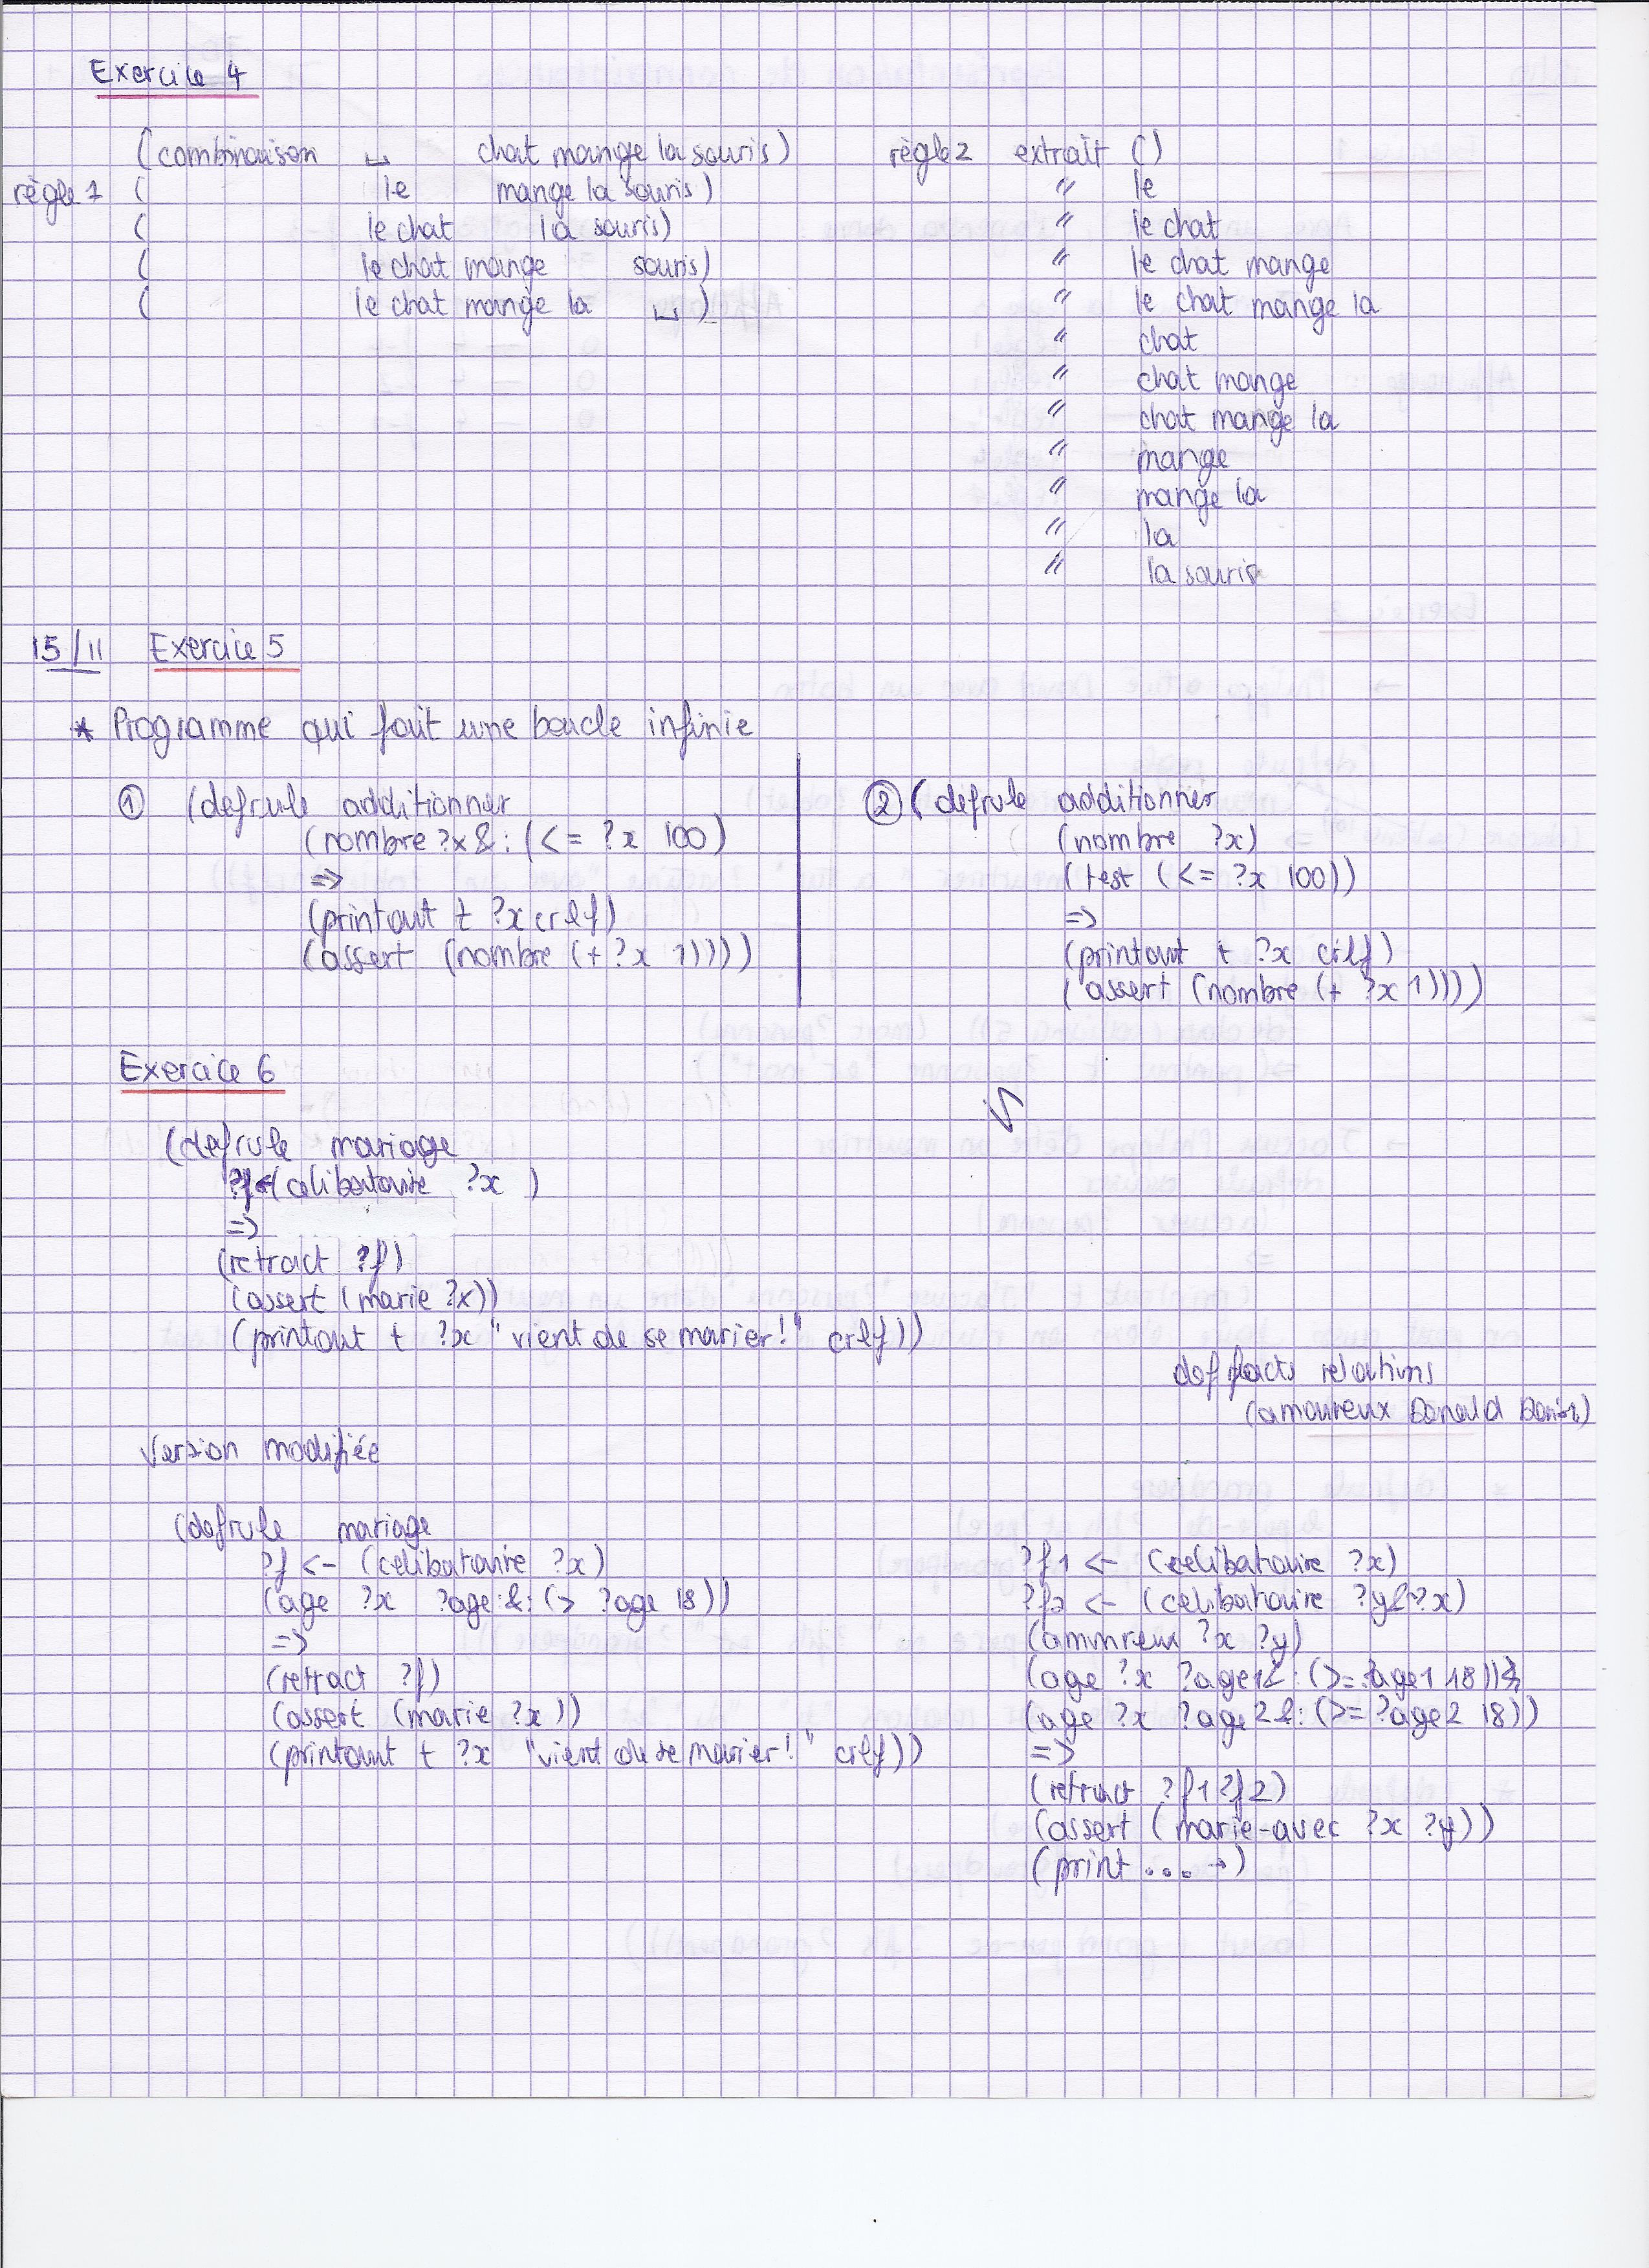 Exercice 4
(combinaison ␣ chat mange la souris)
règle 1 ( le mange la souris)
( le chat la souris)
( le chat mange souris)
( le chat mange la ␣ )
règle 2 extrait ()
" le
" le chat
" le chat mange
" le chat mange la
" chat
" chat mange
" chat mange la
" mange
" mange la
" la
" la souris
15/11 Exercice 5
* Programme qui fait une boucle infinie
① (defrule additionner
(nombre ?x &: (<= ?x 100)
=>
(printout t ?x crlf)
(assert (nombre (+ ?x 1))))
② (defrule additionner
(nombre ?x)
(test (<= ?x 100))
=>
(printout t ?x crlf)
(assert (nombre (+ ?x 1))))
Exercice 6
(defrule mariage
?f<-(celibataire ?x )
=>
(retract ?f)
(assert (marie ?x))
(printout t ?x "vient de se marier!" crlf))
deffacts relations
(amoureux Donald
Version modifiée
(defrule mariage
?f <- (celibataire ?x)
(age ?x ?age &: (> ?age 18))
=>
(retract ?f)
(assert (marie ?x))
(printout t ?x "vient de se marier!" crlf))
?f1 <- (celibataire ?x)
?f2 <- (celibataire ?y&~?x)
(amoureux ?x ?y)
(age ?x ?age1&:(>= ?age1 18))
(age ?x ?age2&:(>= ?age2 18))
=>
(retract ?f1 ?f2)
(assert (marie-avec ?x ?y))
(print .... →)